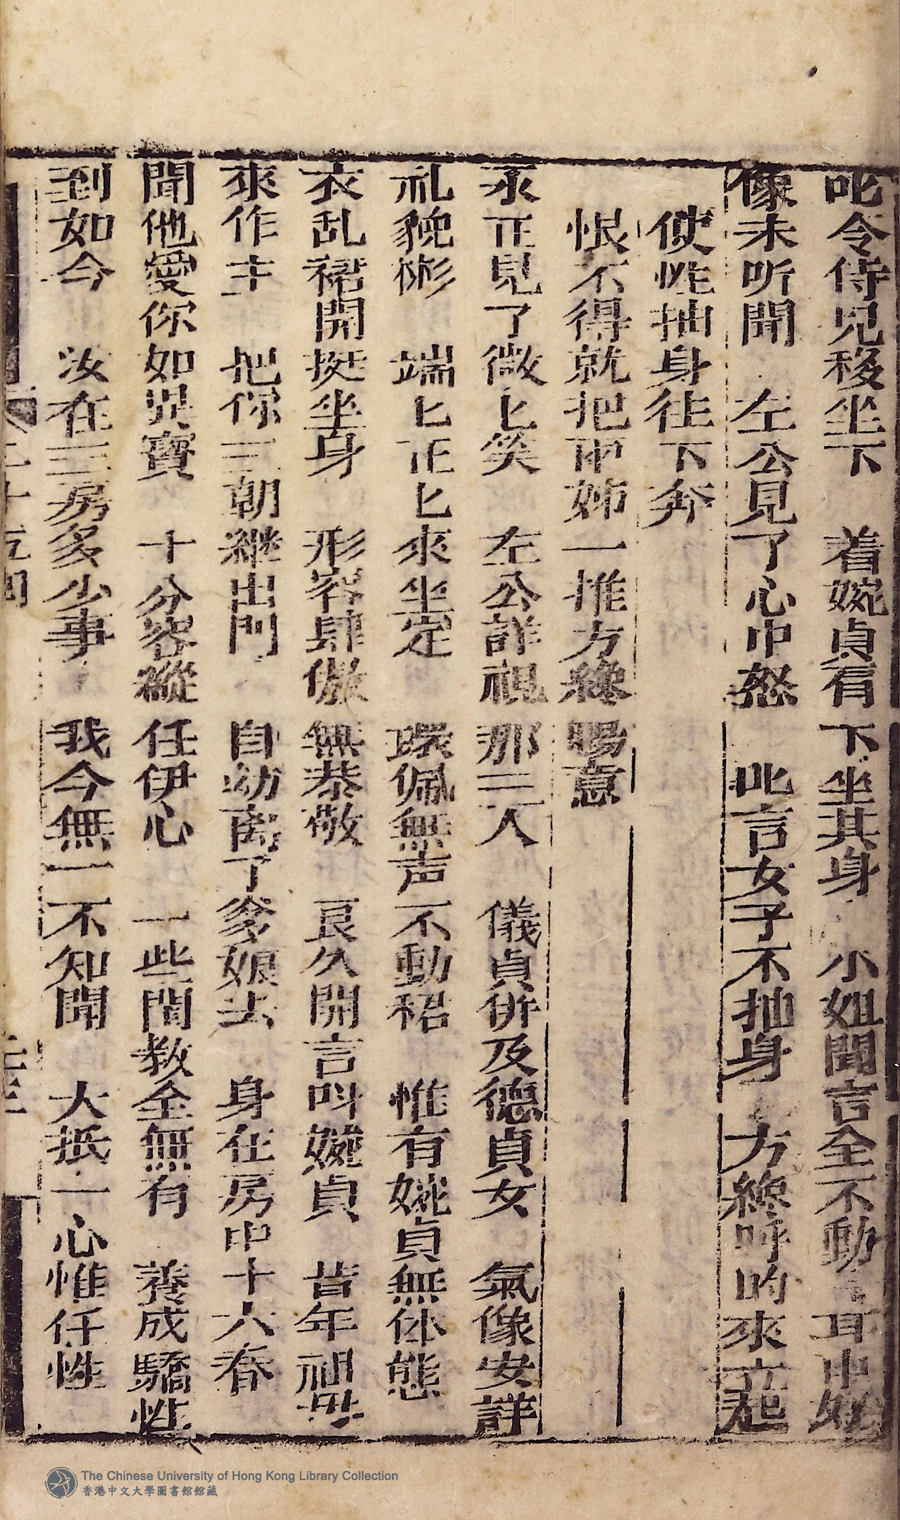 叱令侍児移坐下　着婉貞有下坐其身　小姐聞言全不動　耳中好
像未听聞　左公見了心中怒　此言女子不抽身　方綠呼的來立起
使性抽身往下奔
恨不得就把甲姊一推方綠暢意
永正見了微匕笑　左公詳視那三人　儀貞併及德貞女　氣像安詳
礼貌彬　端匕正匕來坐定　環佩無声不動裙　惟有婉貞無体態
衣乱裙開挺坐身　形容肆傲無恭敬　良久開言叫婉貞　昔年祖母
來作主　把你三朝継出門　自幼离了爹娘去　身在房中十六春
聞他愛你如異寳　十分容縱任伊心　一些閨教全無有　養成驕性
到如今　汝在三房多少事　我今無一不知聞　大抵一心惟任性
The Chinese University of Hong Kong Library Collection
香港中文大學圖書館館藏